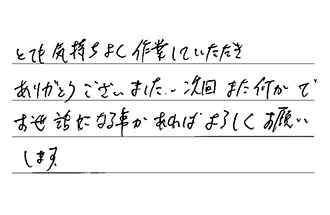 とても気持ちよく作業していただき
ありがとうございました。次回また何かで
お世話になる事があればよろしくお願い
します。